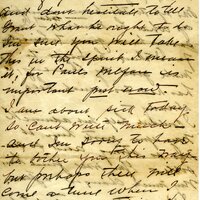 and don't hesitate to tell
what he ought to be
sure you will take
this in the spirit I mean
it, for Pauls welfare is
important just now.
I am about sick today
so can't write much
and I'm sorry to have
to bother you this way
but perhaps there will
come a time when I